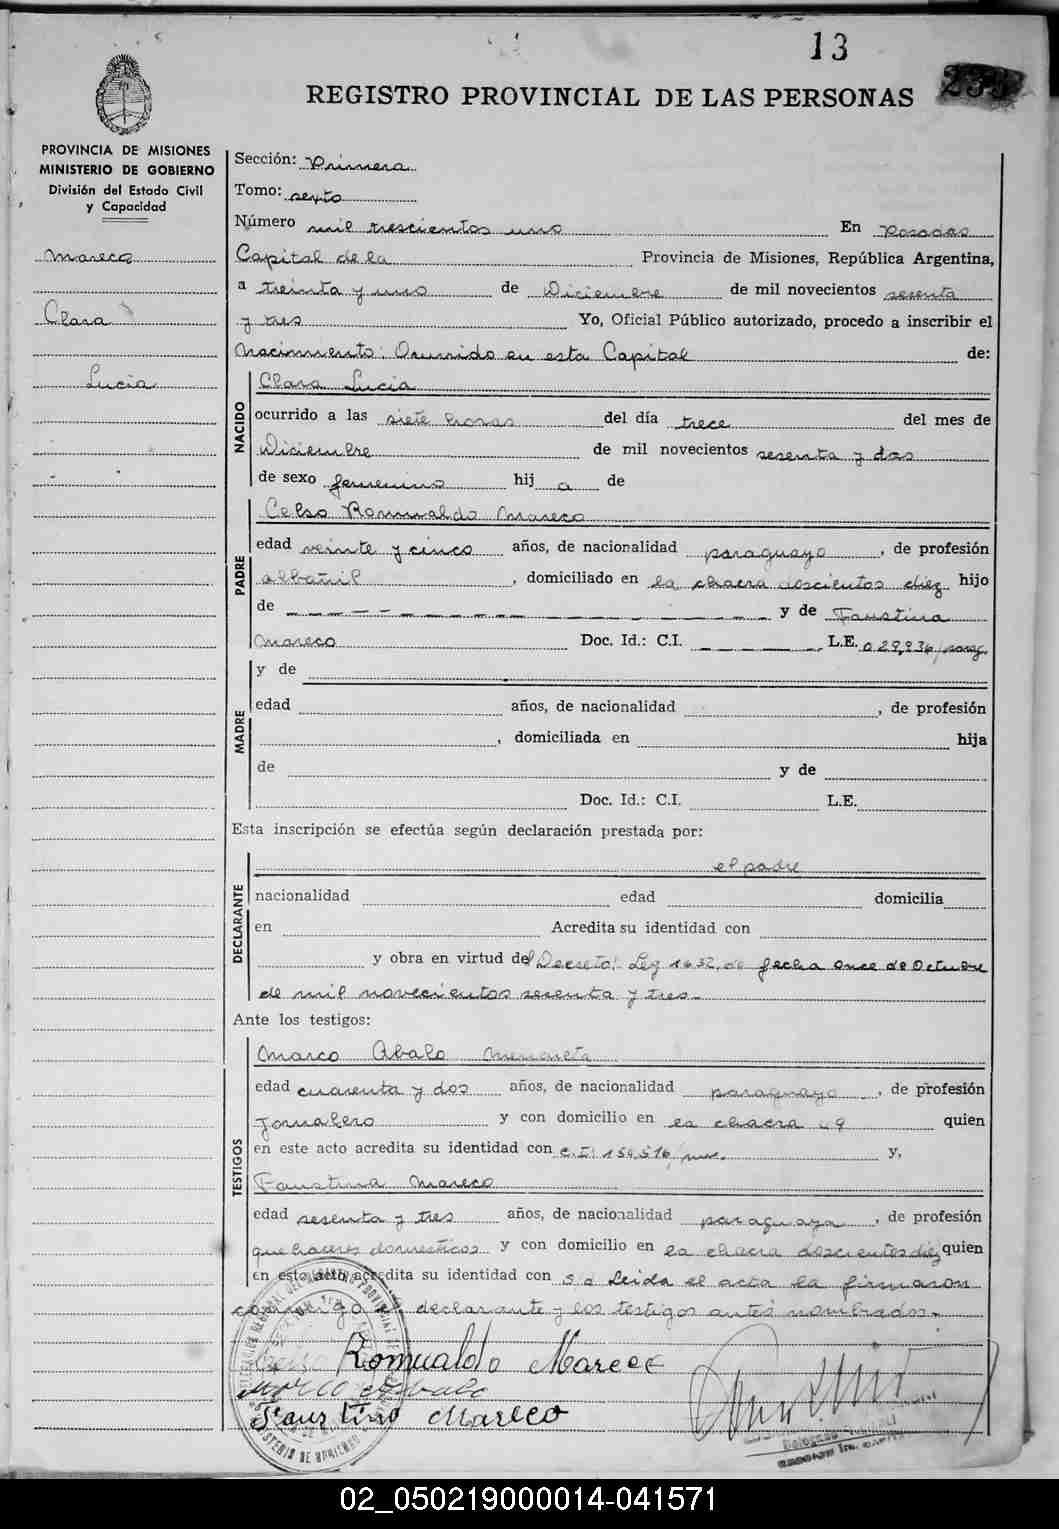 13
REGISTRO PROVINCIAL DE LAS PERSONAS
PROVINCIA DE MISIONES
MINISTERIO DE GOBIERNO
División del Estado Civil
y Capacidad
Mareco
Clara
Lucia
Sección: Primera
Tomo: sexto
Número mil trescientos uno En Posadas
Capital de la Provincia de Misiones, República Argentina,
a treinta y uno de Diciembre de mil novecientos sesenta
y tres Yo, Oficial Público autorizado, procedo a inscribir el
Nacimiento: Ocurrido en esta Capital de:
NACIDO
Clara Lucia
ocurrido a las siete horas del día trece del mes de
Diciembre de mil novecientos sesenta y dos
de sexo femenino hij a de
PADRE
Celso Romualdo Mareco
edad veinte y cinco años, de nacionalidad paraguayo, de profesión
albañil, domiciliado en la chacra doscientos diez hijo
de y de Faustina
Mareco Doc. Id.: C.I. L.E. 029,936/parag.
y de
MADRE
edad años, de nacionalidad , de profesión
, domiciliada en hija
de y de
Doc. Id.: C.I. L.E.
Esta inscripción se efectúa según declaración prestada por:
DECLARANTE
el padre
nacionalidad edad domicilia
en Acredita su identidad con
y obra en virtud del Decreto: Ley 1632, de fecha once de Octubre
de mil novecientos sesenta y tres.-
Ante los testigos:
TESTIGOS
Marco Abalo
edad cuarenta y dos años, de nacionalidad paraguayo, de profesión
Jornalero y con domicilio en la chacra 49 quien
en este acto acredita su identidad con C.I: 150,516, y,
Faustina Mareco
edad sesenta y tres años, de nacionalidad paraguaya, de profesión
quehaceres domesticos y con domicilio en la chacra doscientos diez quien
en este acto acredita su identidad con s.d Leida el acta la firmaron
conmigo el declarante y los testigos antes nombrados.-
Celso Romualdo Mareco
Marco Abalo
Faustino Mareco
02_050219000014-041571